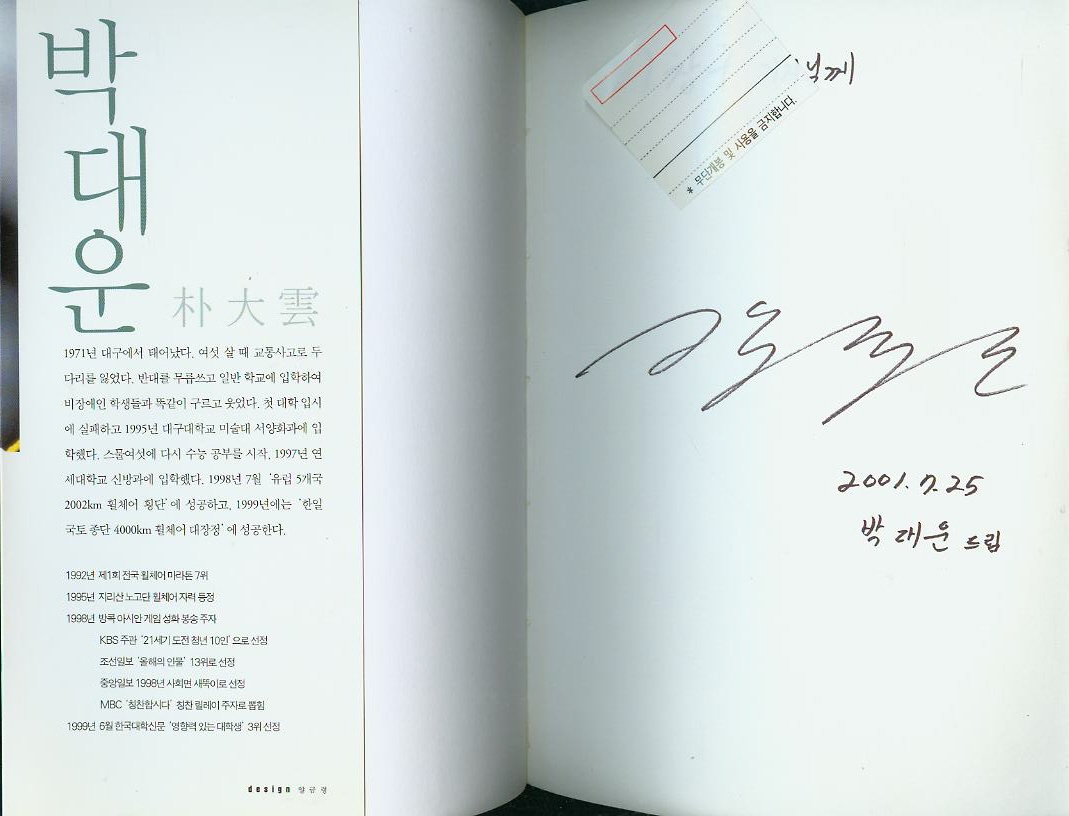 박
대
운
朴大雲
1971년 대구에서 태어났다. 여섯 살 때 교통사고로 두
다리를 잃었다. 반대를 무릅쓰고 일반 학교에 입학하여
비장애인 학생들과 똑같이 구르고 웃었다. 첫 대학 입시
에 실패하고 1995년 대구대학교 미술대 서양화과에 입
학했다. 스물여섯에 다시 수능 공부를 시작, 1997년 연
세대학교 신방과에 입학했다. 1998년 7월 '유럽 5개국
2002km 휠체어 횡단'에 성공하고, 1999년에는 '한일
국토 종단 4000km 휠체어 대장정'에 성공한다.
1992년 제1회 전국 휠체어 마라톤 7위
1995년 지리산 노고단 휠체어 자력 등정
1998년 방콕 아시안 게임 성화 봉송 주자
KBS 주관 '21세기 도전 청년 10인'으로 선정
조선일보 '올해의 인물' 13위로 선정
중앙일보 1998년 사회면 새뚝이로 선정
MBC '칭찬합시다' 칭찬 릴레이 주자로 뽑힘
1999년 6월 한국대학신문 '영향력 있는 대학생' 3위 선정
design 양금령
님께
* 무단개봉 및 사용을 금지합니다.
2001. 7. 25
박대운 드림